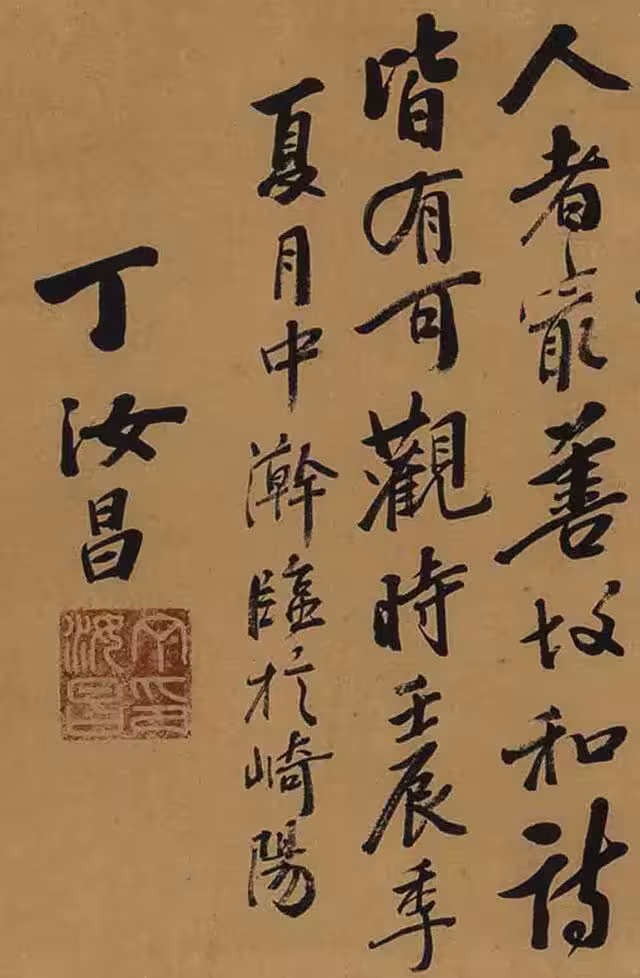 人者最善故和詩
皆有可觀時壬辰季
夏月中澣臨於崎陽
丁汝昌
汝昌